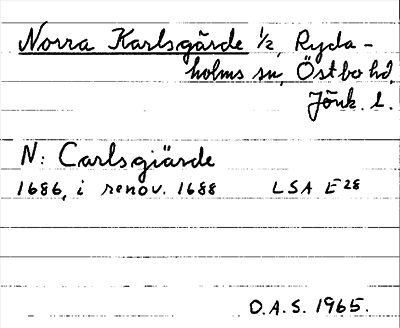 Norra Karlsgärde 1/2, Ryda-
holms sn, Östbo hd,
Jönk. l.
N: Carlsgiärde
1686, i renov. 1688 LSA E28
O.A.S. 1965.